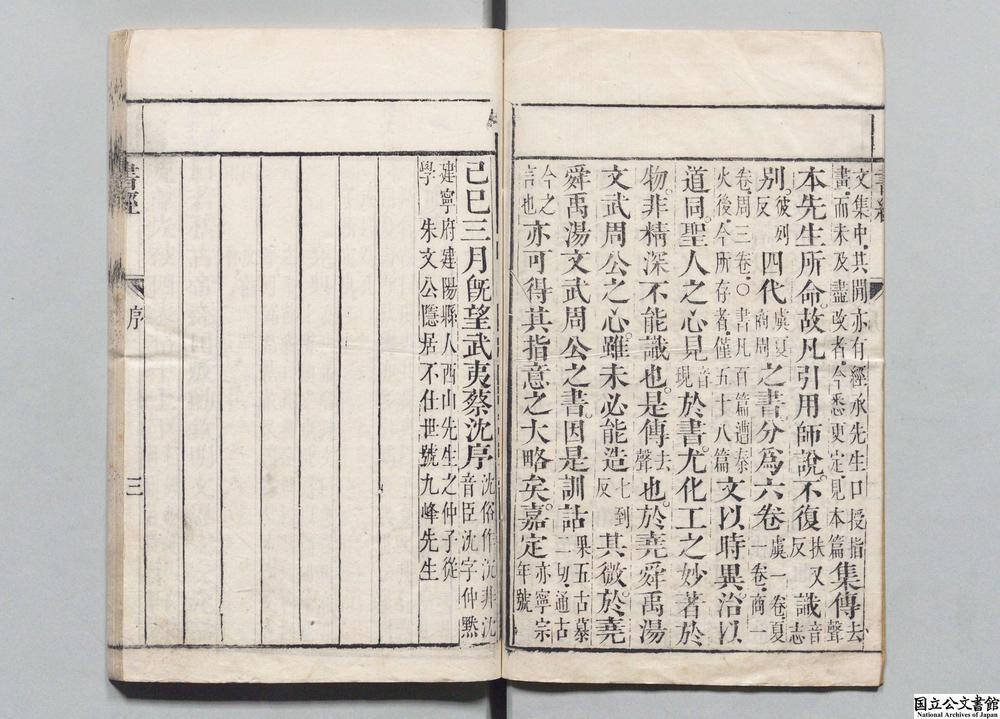 書經
文集中其閒亦有經承先生口授指畫而未及盡改者今悉更定見本篇集傳去聲
本先生所命故凡引用師說不復扶又反識音志
別彼列反四代虞夏商周之書分爲六卷虞一卷夏一卷商一
卷周三卷○書凡百篇遭秦火後今所存者僅五十八篇文以時異治以
道同聖人之心見音現於書尤化工之妙著於
物非精深不能識也是傳去聲也於堯舜禹湯
文武周公之心雖未必能造七到反其微於堯
舜禹湯文武周公之書因是訓詁果五古慕二切通古
今之言也亦可得其指意之大略矣嘉定亦寧宗年號
己巳三月旣望武夷蔡沈序沈俗作沉非沈音臣沈字仲黙
建寧府建陽縣人西山先生之仲子從
學朱文公隱居不仕世號九峰先生
書經
序
三
国立公文書館
National Archives of Japan